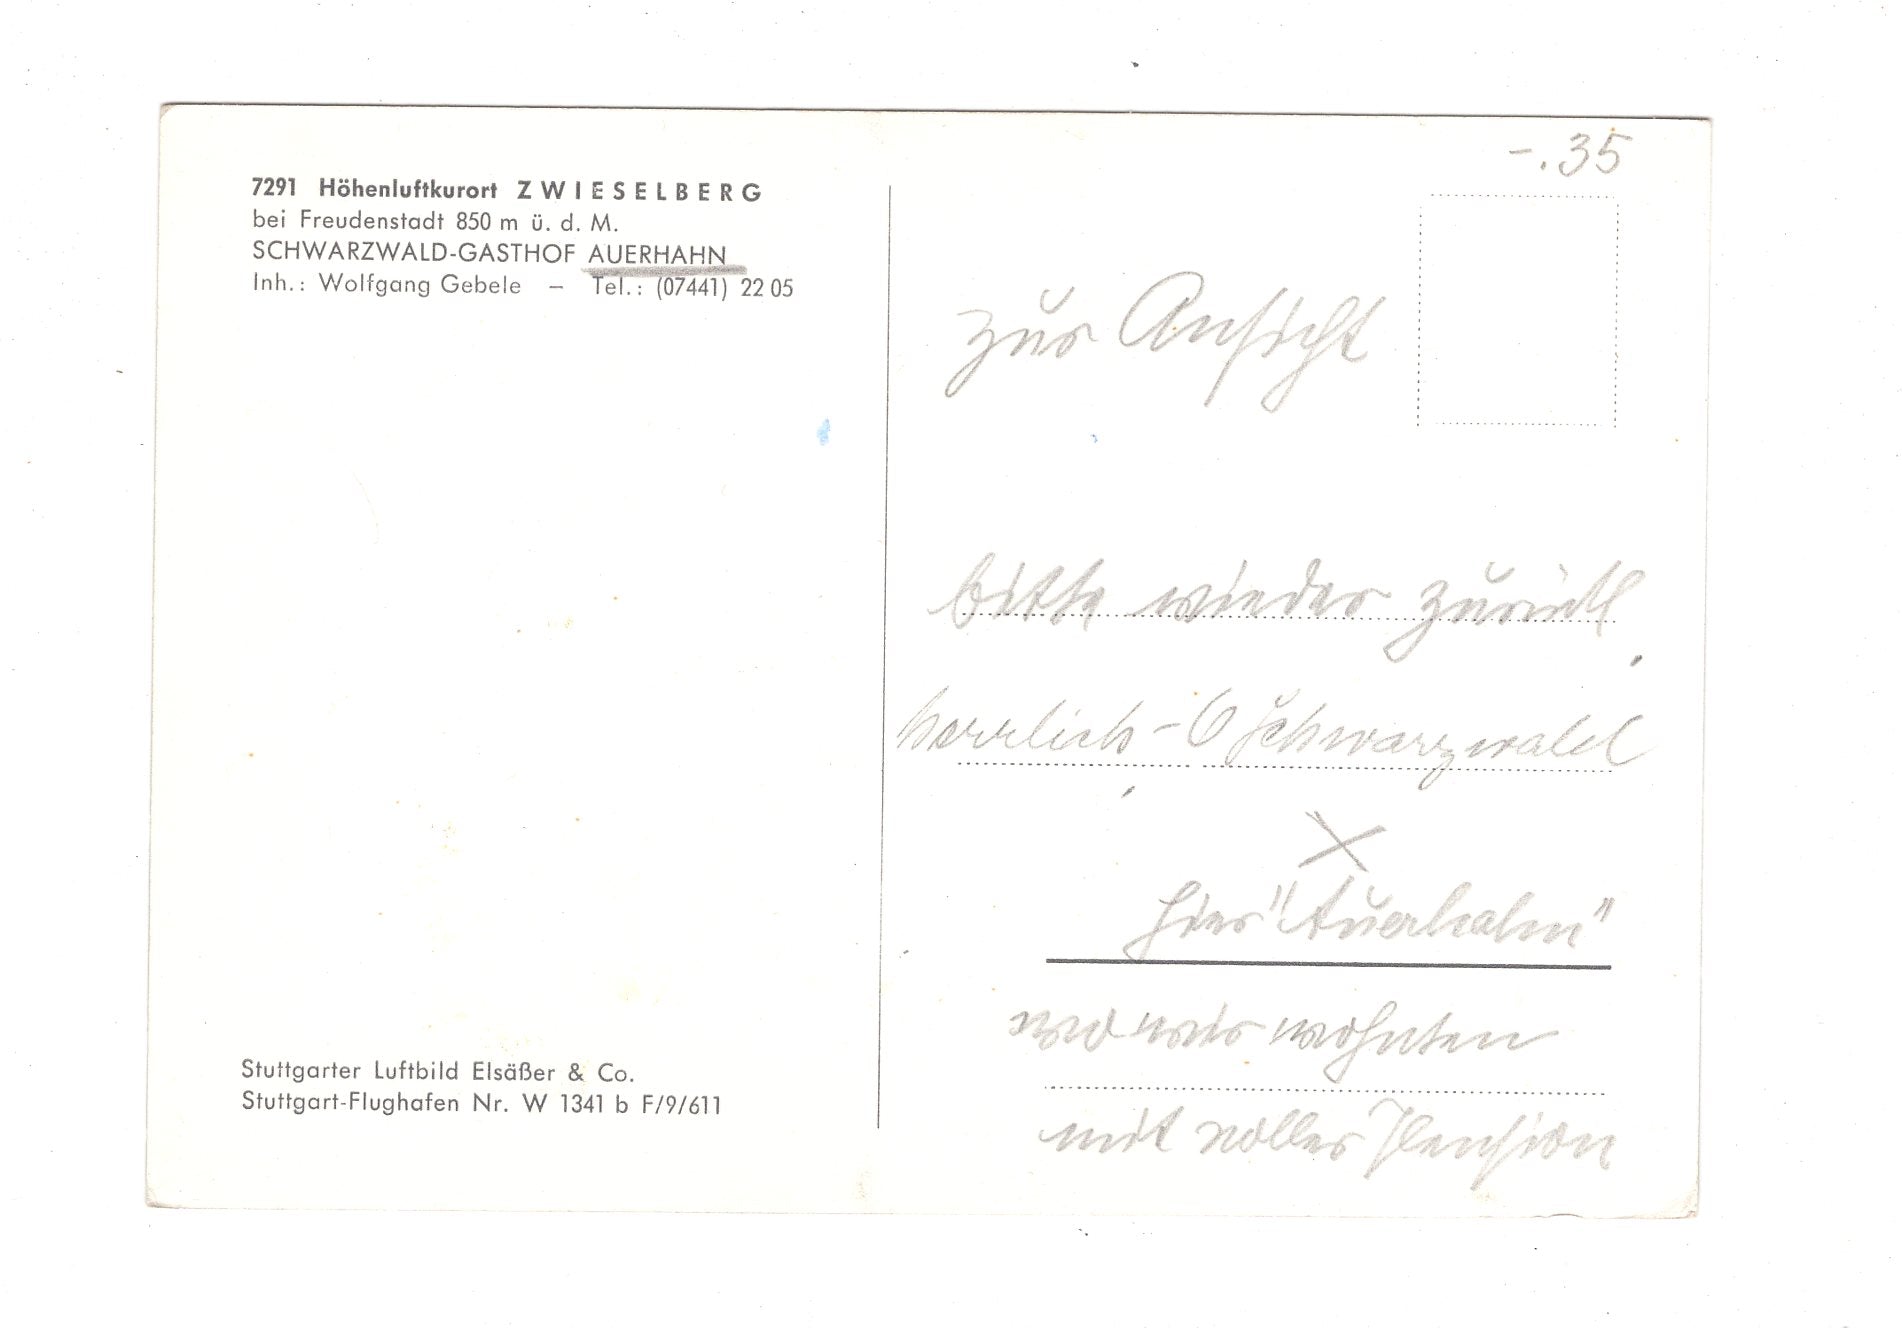 7291 Höhenluftkurort ZWIESELBERG
bei Freudenstadt 850 m ü. d. M.
SCHWARZWALD-GASTHOF AUERHAHN
Inh.: Wolfgang Gebele – Tel.: (07441) 22 05
Stuttgarter Luftbild Elsäßer & Co.
Stuttgart-Flughafen Nr. W 1341 b F/9/611
-.35
zur Ansicht
bitte wieder zurück
herrlich - Schwarzwald
X
hier "Auerhahn"
wo wir wohnten
mit voller Pension